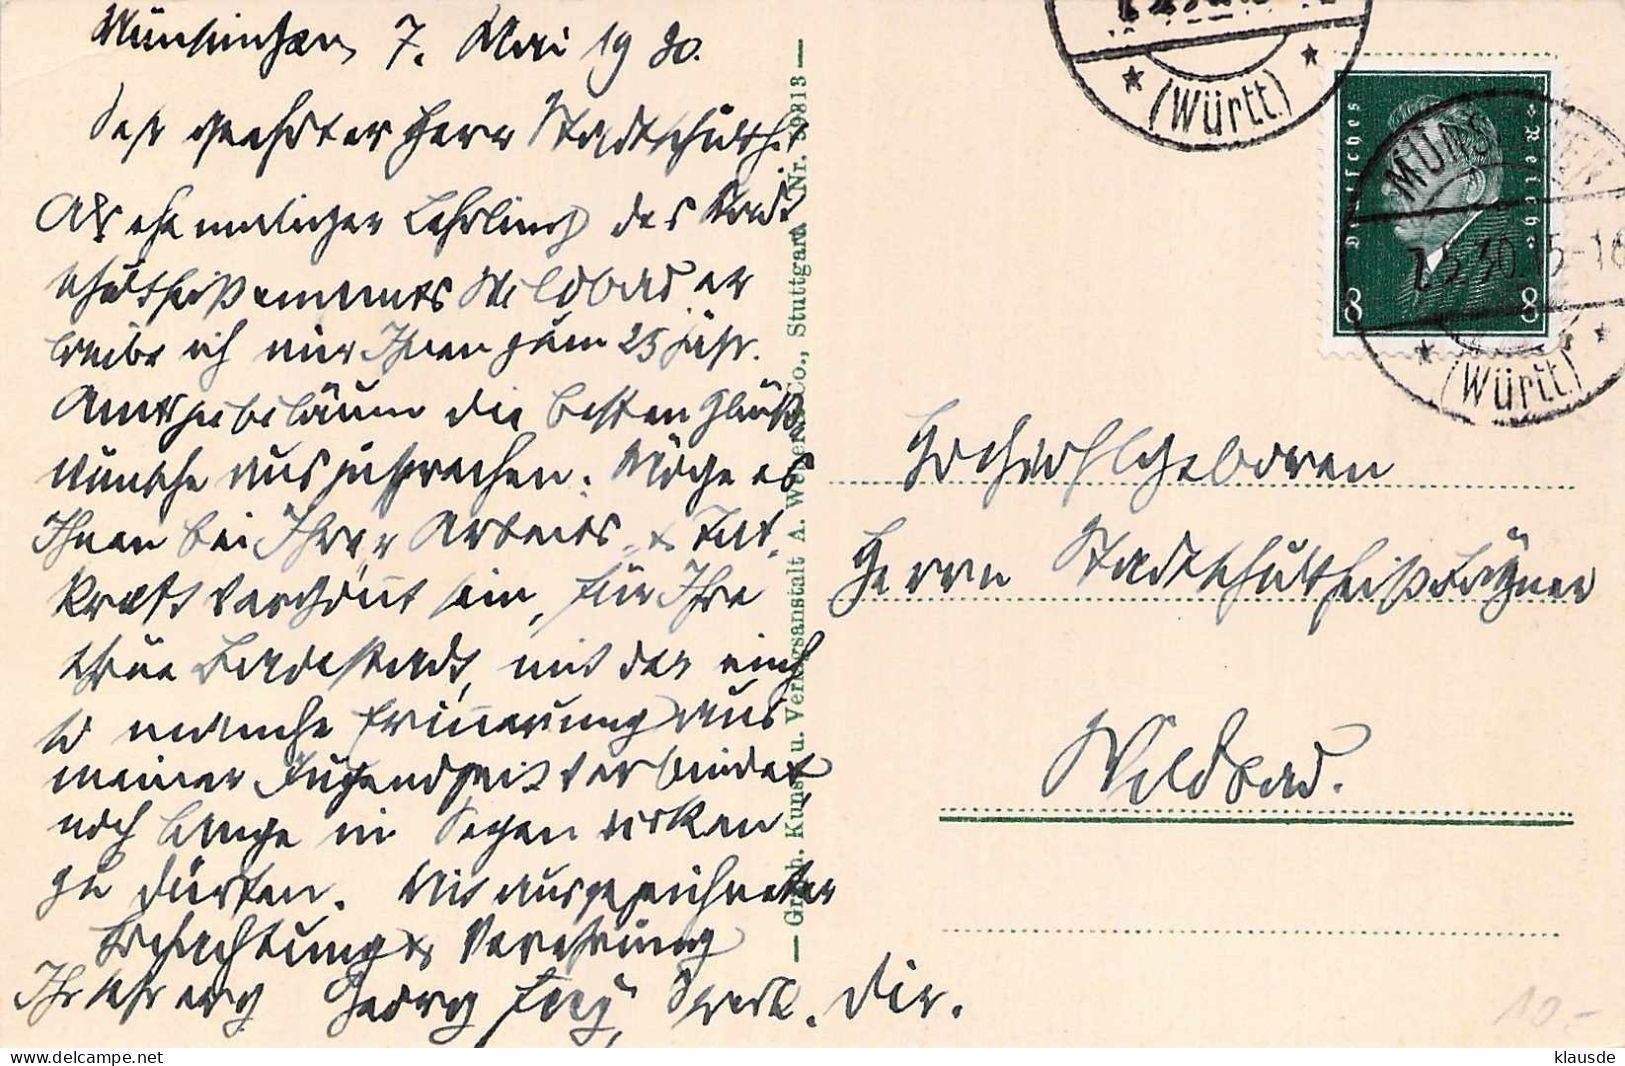 Münsingen, 7. Mai 1930.
Sehr geehrter Herr Stadtschulth.
Als ehemaliger Lehrling des Stadt
schultheißenamts Wildbad er
laube ich mir Ihnen zum 25 jähr.
Amtsjubiläum die besten Glück
wünsche auszusprechen. Möge es
Ihnen bei Ihrer Arbeits- & Tat-
kraft vergönnt sein, für Ihre
schöne Badestadt, mit der mich
so manche Erinnerung aus
meiner Jugendzeit verbindet,
noch lange in Segen wirken
zu dürfen. Mit ausgezeichneter
Hochachtung & Verehrung
Ihr sehr erg. Georg Dir.
— Graph. Kunst- u. Verlagsanstalt A. Weber & Co., Stuttgart Nr. 39813 —
(Württ.)
Deutsches Reich
8 8
MÜNSINGEN
7.5.30. 15-16
(Württ.)
Hochwohlgeboren
Herrn Stadtschultheiß Bätzner
Wildbad.
10.-
klausde